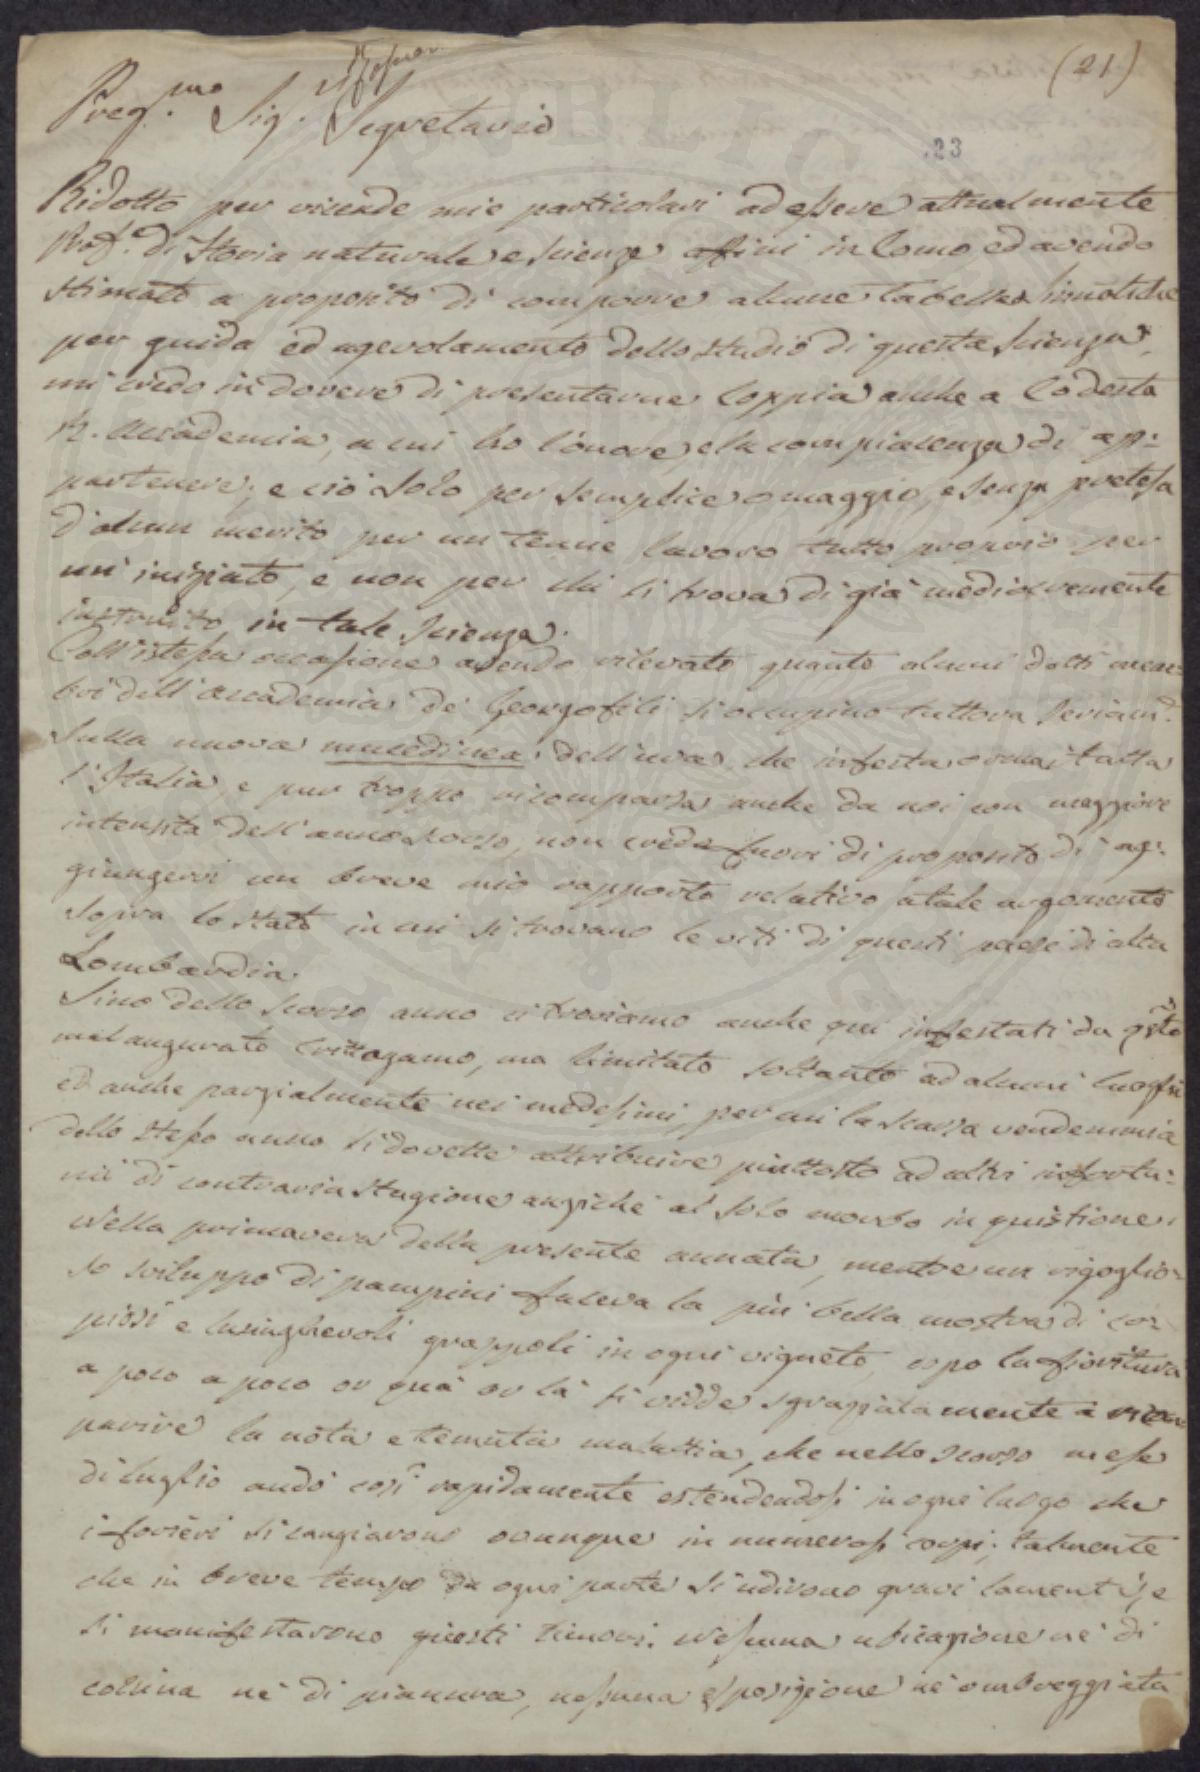 (21)
Professor
Preg.mo Sig. Segretario
.23
Ridotto per vicende mie particolari ad essere attualmente
Prof. di Storia naturale e scienze affini in Como ed avendo
stimato a proposito di comporre alcune tabelle sinottiche
per guida ed agevolamento dello studio di questa scienza,
mi credo in dovere di presentarne coppia anche a Codesta
R. Accademia, a cui ho l'onore, e la compiacenza di ap:
partenere; e ciò solo per semplice omaggio, e senza pretesa
d'alcun merito per un tenue lavoro tutto proprio per
un iniziato, e non per chi si trova di già mediocremente
instruito in tale scienza.
Coll'istessa occasione avendo rilevato quanto alcuni dotti mem:
bri dell'accademia de' Georgofili si occupino tuttora seriam.
sulla nuova mucedinea dell'uva, che infesta ormai tutta
l'Italia, e pur troppo ricomparsa anche da noi con maggiore
intensità dell'anno scorso, non credo fuori di proposito di ag:
giungervi un breve mio rapporto relativo a tale argomento
sopra lo stato in cui si trovano le viti di questi paesi di alta
Lombardia.
Sino dello scorso anno ci troviamo anche qui infestati da qsto
malaugurato crittogamo, ma limitato soltanto ad alcuni luoghi
ed anche parzialmente nei medesimi, per cui la scarsa vendemmia
dello stesso anno si dovette attribuire piuttosto ad altri infortu:
nii di contraria stagione anziché al solo morbo in quistione.
Nella primavera della presente annata, mentre un rigoglio:
so sviluppo di pampini faceva la più bella mostra di co:
piosi e lusinghevoli grappoli in ogni vigneto, dopo la fioritura
a poco a poco or quà or là si vidde sgraziatamente a ricom
parire la nota e temuta malattia, che nello scorso mese
di luglio andò così rapidamente estendendosi in ogni luogo che
i forieri si cangiarono ovunque in numerosi corpi; talmente
che in breve tempo da ogni parte si udirono gravi lamenti, e
si manifestarono giusti timori. Nessuna ubicazione né di
collina né di pianura, nessuna esposizione né ombreggiata